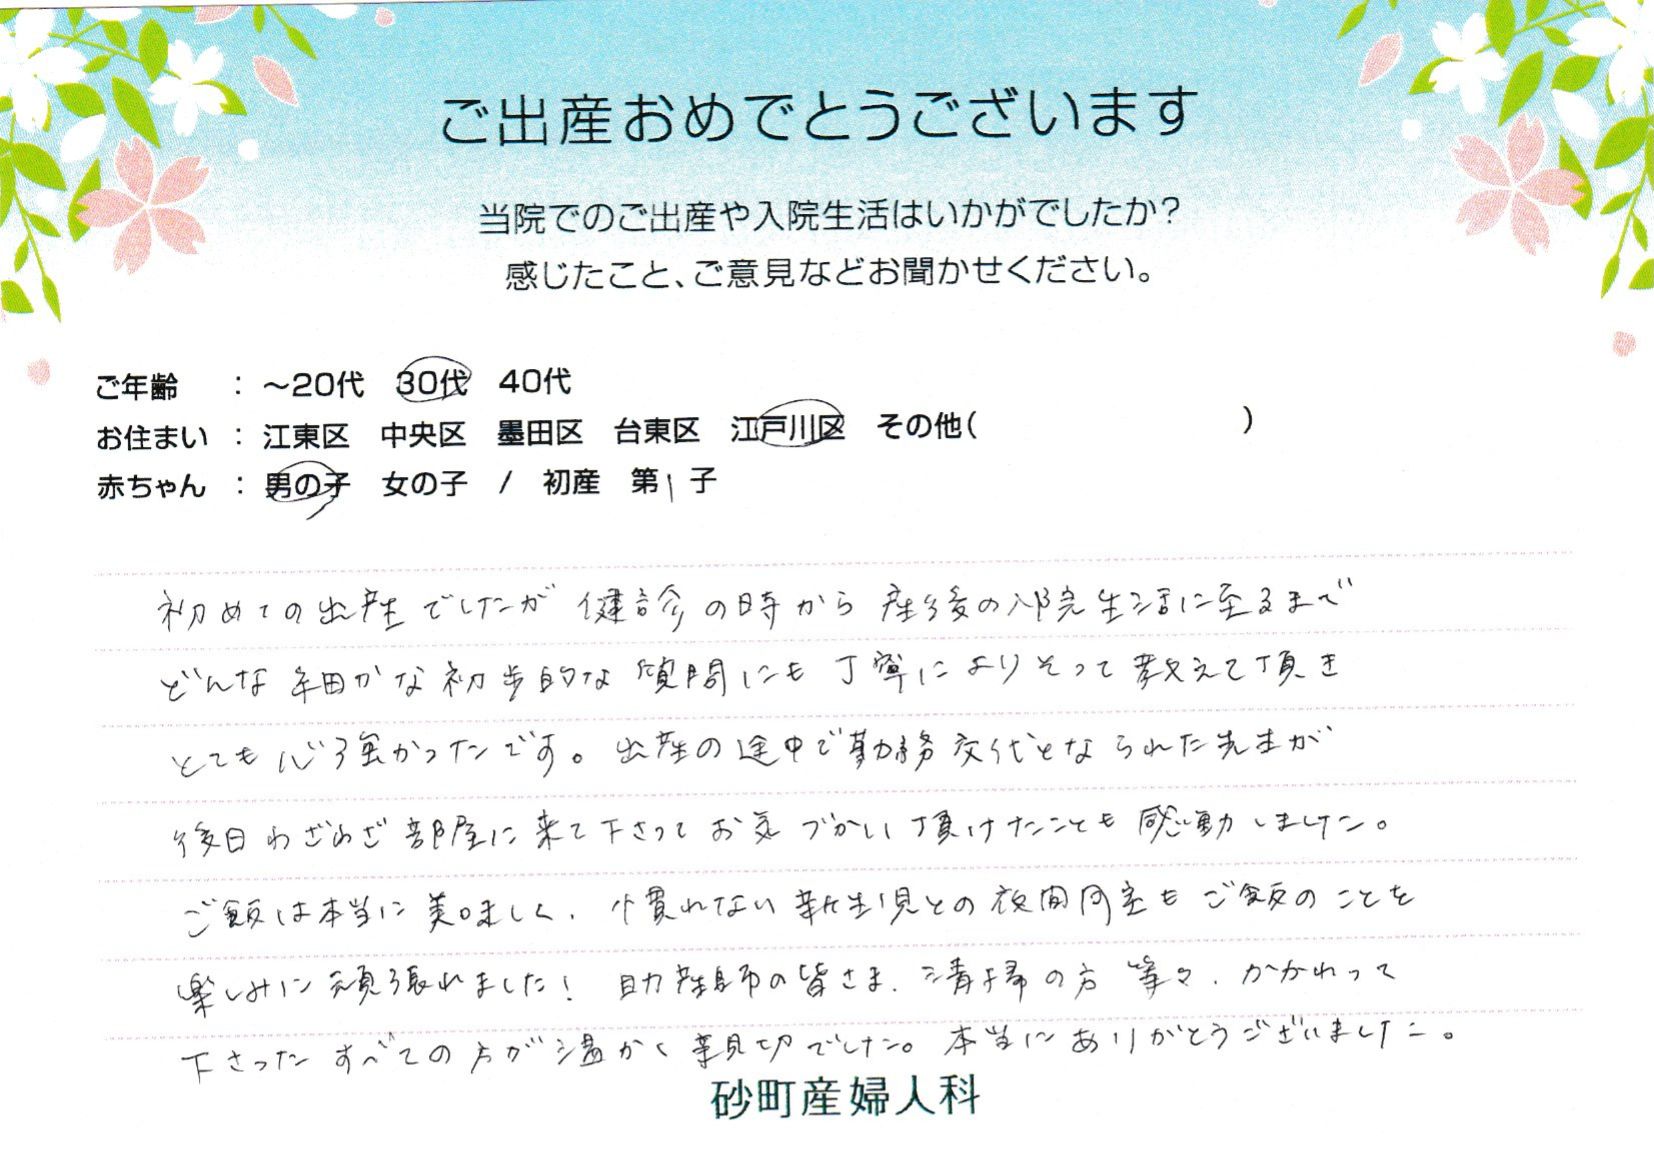 ご出産おめでとうございます
当院でのご出産や入院生活はいかがでしたか?
感じたこと、ご意見などお聞かせください。
ご年齢 : ～20代 30代 40代
お住まい : 江東区 中央区 墨田区 台東区 江戸川区 その他( )
赤ちゃん : 男の子 女の子 / 初産 第1子
初めての出産でしたが健診の時から産後の入院生活に至るまで
どんな細かな初歩的な質問にも丁寧によりそって教えて頂き
とても心強かったです。出産の途中で勤務交代となられた先生が
後日わざわざ部屋に来て下さってお気づかい頂けたことも感動しました。
ご飯は本当に美味しく、慣れない新生児との夜間同室もご飯のことを
楽しみに頑張れました!助産師の皆さま、清掃の方等々、かかわって
下さったすべての方が温かく親切でした。本当にありがとうございました。
砂町産婦人科